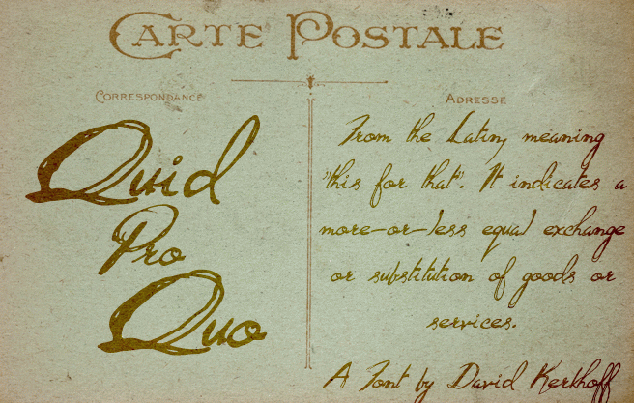 CARTE POSTALE
CORRESPONDANCE
ADRESSE
Quid
Pro
Quo
From the Latin, meaning
"this for that". It indicates a
more-or-less equal exchange
or substitution of goods or
services.
A Font by David Kerkhoff